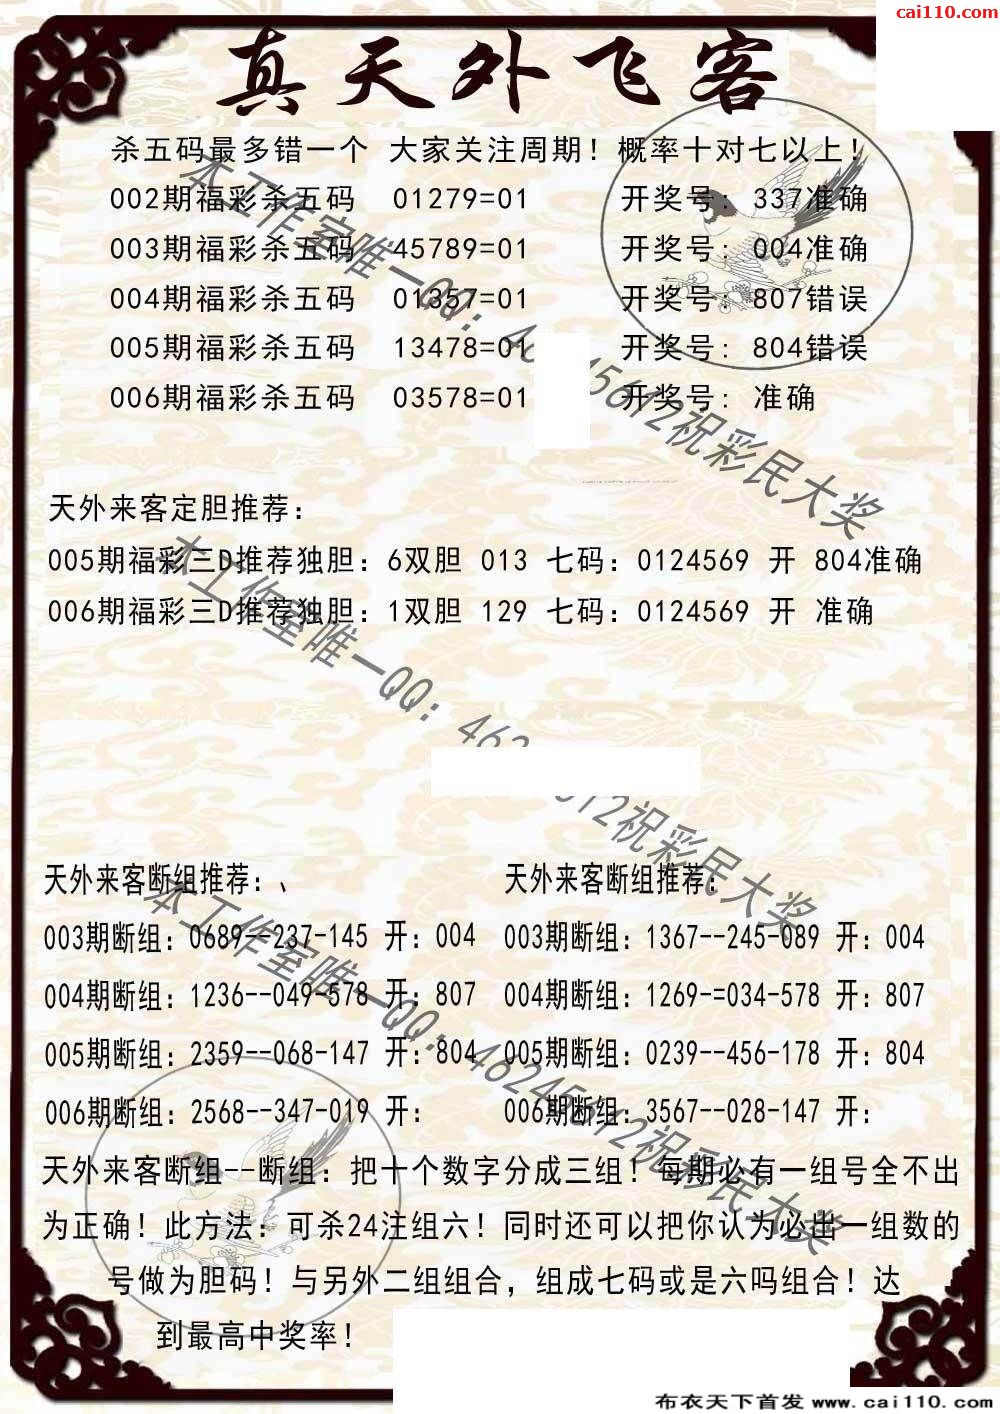 cai110.com
真天外飞客
杀五码最多错一个 大家关注周期！概率十对七以上！
002期福彩杀五码 01279=01 开奖号：337准确
003期福彩杀五码 45789=01 开奖号：004准确
004期福彩杀五码 01357=01 开奖号：807错误
005期福彩杀五码 13478=01 开奖号：804错误
006期福彩杀五码 03578=01 开奖号：准确
本工作室唯一QQ：46245612祝彩民大奖
天外来客定胆推荐：
005期福彩三D推荐独胆：6双胆 013 七码：0124569 开 804准确
006期福彩三D推荐独胆：1双胆 129 七码：0124569 开 准确
本工作室唯一QQ：46245612祝彩民大奖
天外来客断组推荐：、
003期断组：0689--237-145 开：004
004期断组：1236--049-578 开：807
005期断组：2359--068-147 开：804
006期断组：2568--347-019 开：
天外来客断组推荐：
003期断组：1367--245-089 开：004
004期断组：1269-=034-578 开：807
005期断组：0239--456-178 开：804
006期断组：3567--028-147 开：
本工作室唯一QQ：46245612祝彩民大奖
天外来客断组--断组：把十个数字分成三组！每期必有一组号全不出
为正确！此方法：可杀24注组六！同时还可以把你认为必出一组数的
号做为胆码！与另外二组组合，组成七码或是六吗组合！达
到最高中奖率！
布衣天下首发 www.cai110.com